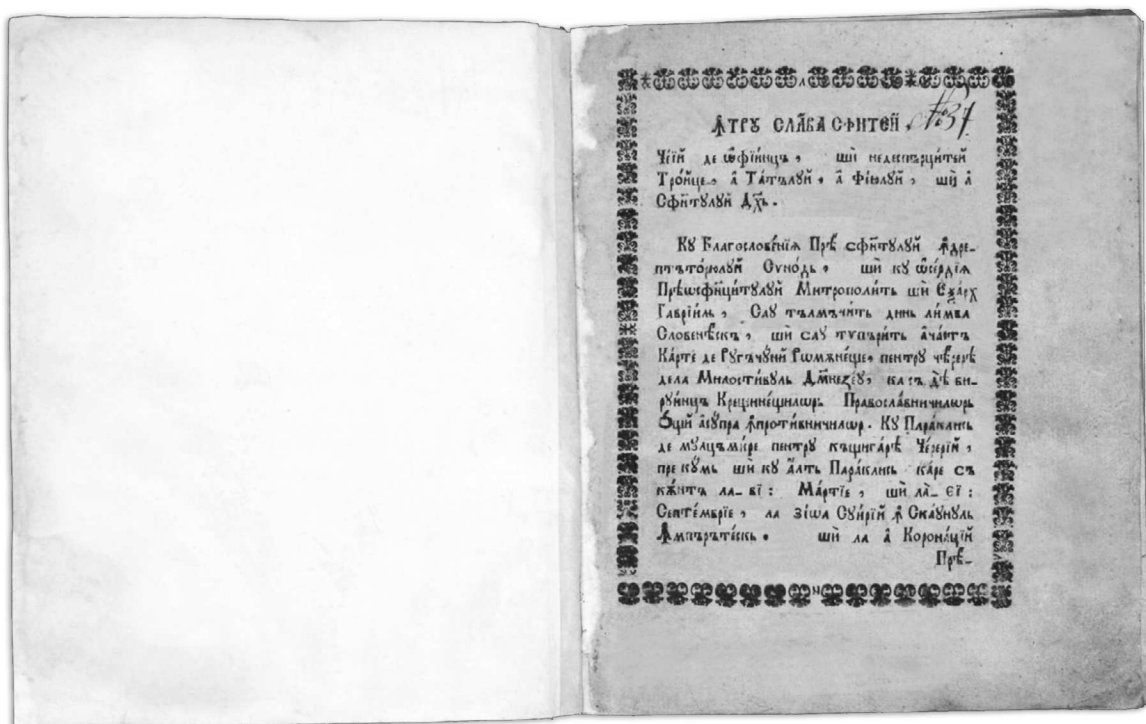 №37
Ꙟтрꙋ слава сфитей.
Чеїй де ѡфїинцъ, ши недеспърцитей
Тройце, а Татълꙋй, а Фїюлꙋй, ши а
Сфитꙋлꙋй Дх҃ь.
Кꙋ Благословенїѧ Прѣ сфитꙋлꙋй ꙟдре-
птътѡрюлꙋй Сѵнодь, ши кꙋ ѡсердїѧ
Прѣѡсфицитꙋлꙋй Митрополить ши Еѯарх
Гаврїиль, Саꙋ тълмъчить динь лимба
Словенѣскъ, ши саꙋ тѵпърить ачастъ
Карте де Рꙋгъчꙋни Рѡмѫнеще, пентрꙋ чѣрерѣ
дела Милостивꙋль Дм҃незеꙋ, ка съ дѣ би-
рꙋинцъ Крещинещилѡрь Православничилѡрь
Ѻщи асꙋпра ꙟпротивничилѡр. Кꙋ Параклись
де мꙋлцъмире пентрꙋ къщигарѣ Черерїй,
прекꙋмь ши кꙋ алть Параклись каре съ
кѫнтъ ла- вı: Мартїе, ши ла- еı:
Септемврїе, ла зїѡа Сꙋирїй ꙟ Скаꙋнꙋль
Ꙟмпърътескь. ши ла а Коронацїй
Прѣ-